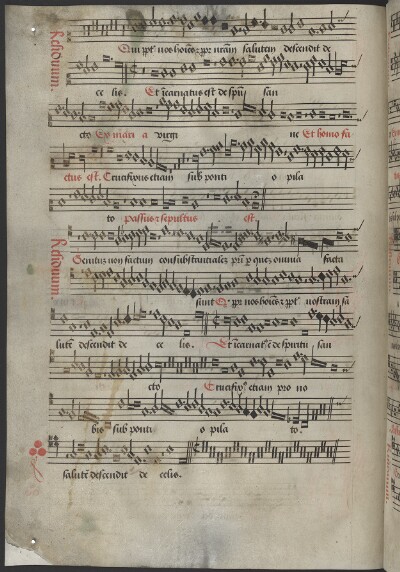 Residuum.
Qui ppt nos hoiēs ⁊ ppt nrām salutem descendit de
ce lis. Et īcarnatus est de spū san
cto Ex mari a virgi ne Et homo fa
ctus est. Crucifixus etiam sub ponti o pila
to passus ⁊ sepultus est.
Residuum
Genitus non factum consubstancialez p̄ri p quez omnia facta
sunt Q ppt nos hoiēs ⁊ ppt nostram sa
lutē descendit de ce lis. Et īcarnat est de spiritu san
cto Crucifix etiam pro no
bis sub ponti o pila to.
salutē descendit de celis.